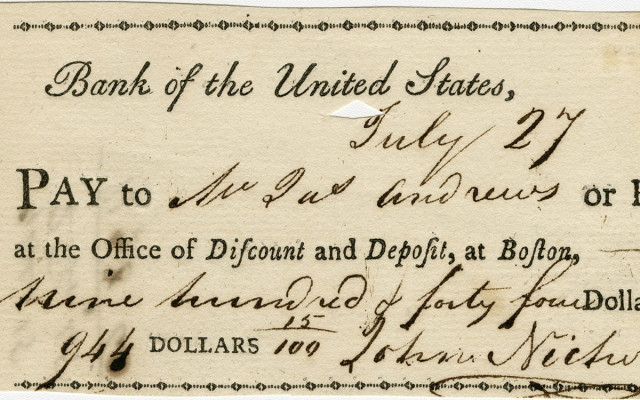 Bank of the United States,
July 27
PAY to Mr Jas Andrews or
at the Office of Diſcount and Depoſit, at Boſton,
Nine hundred & forty four Dolla
944 DOLLARS 15/100 John Nich